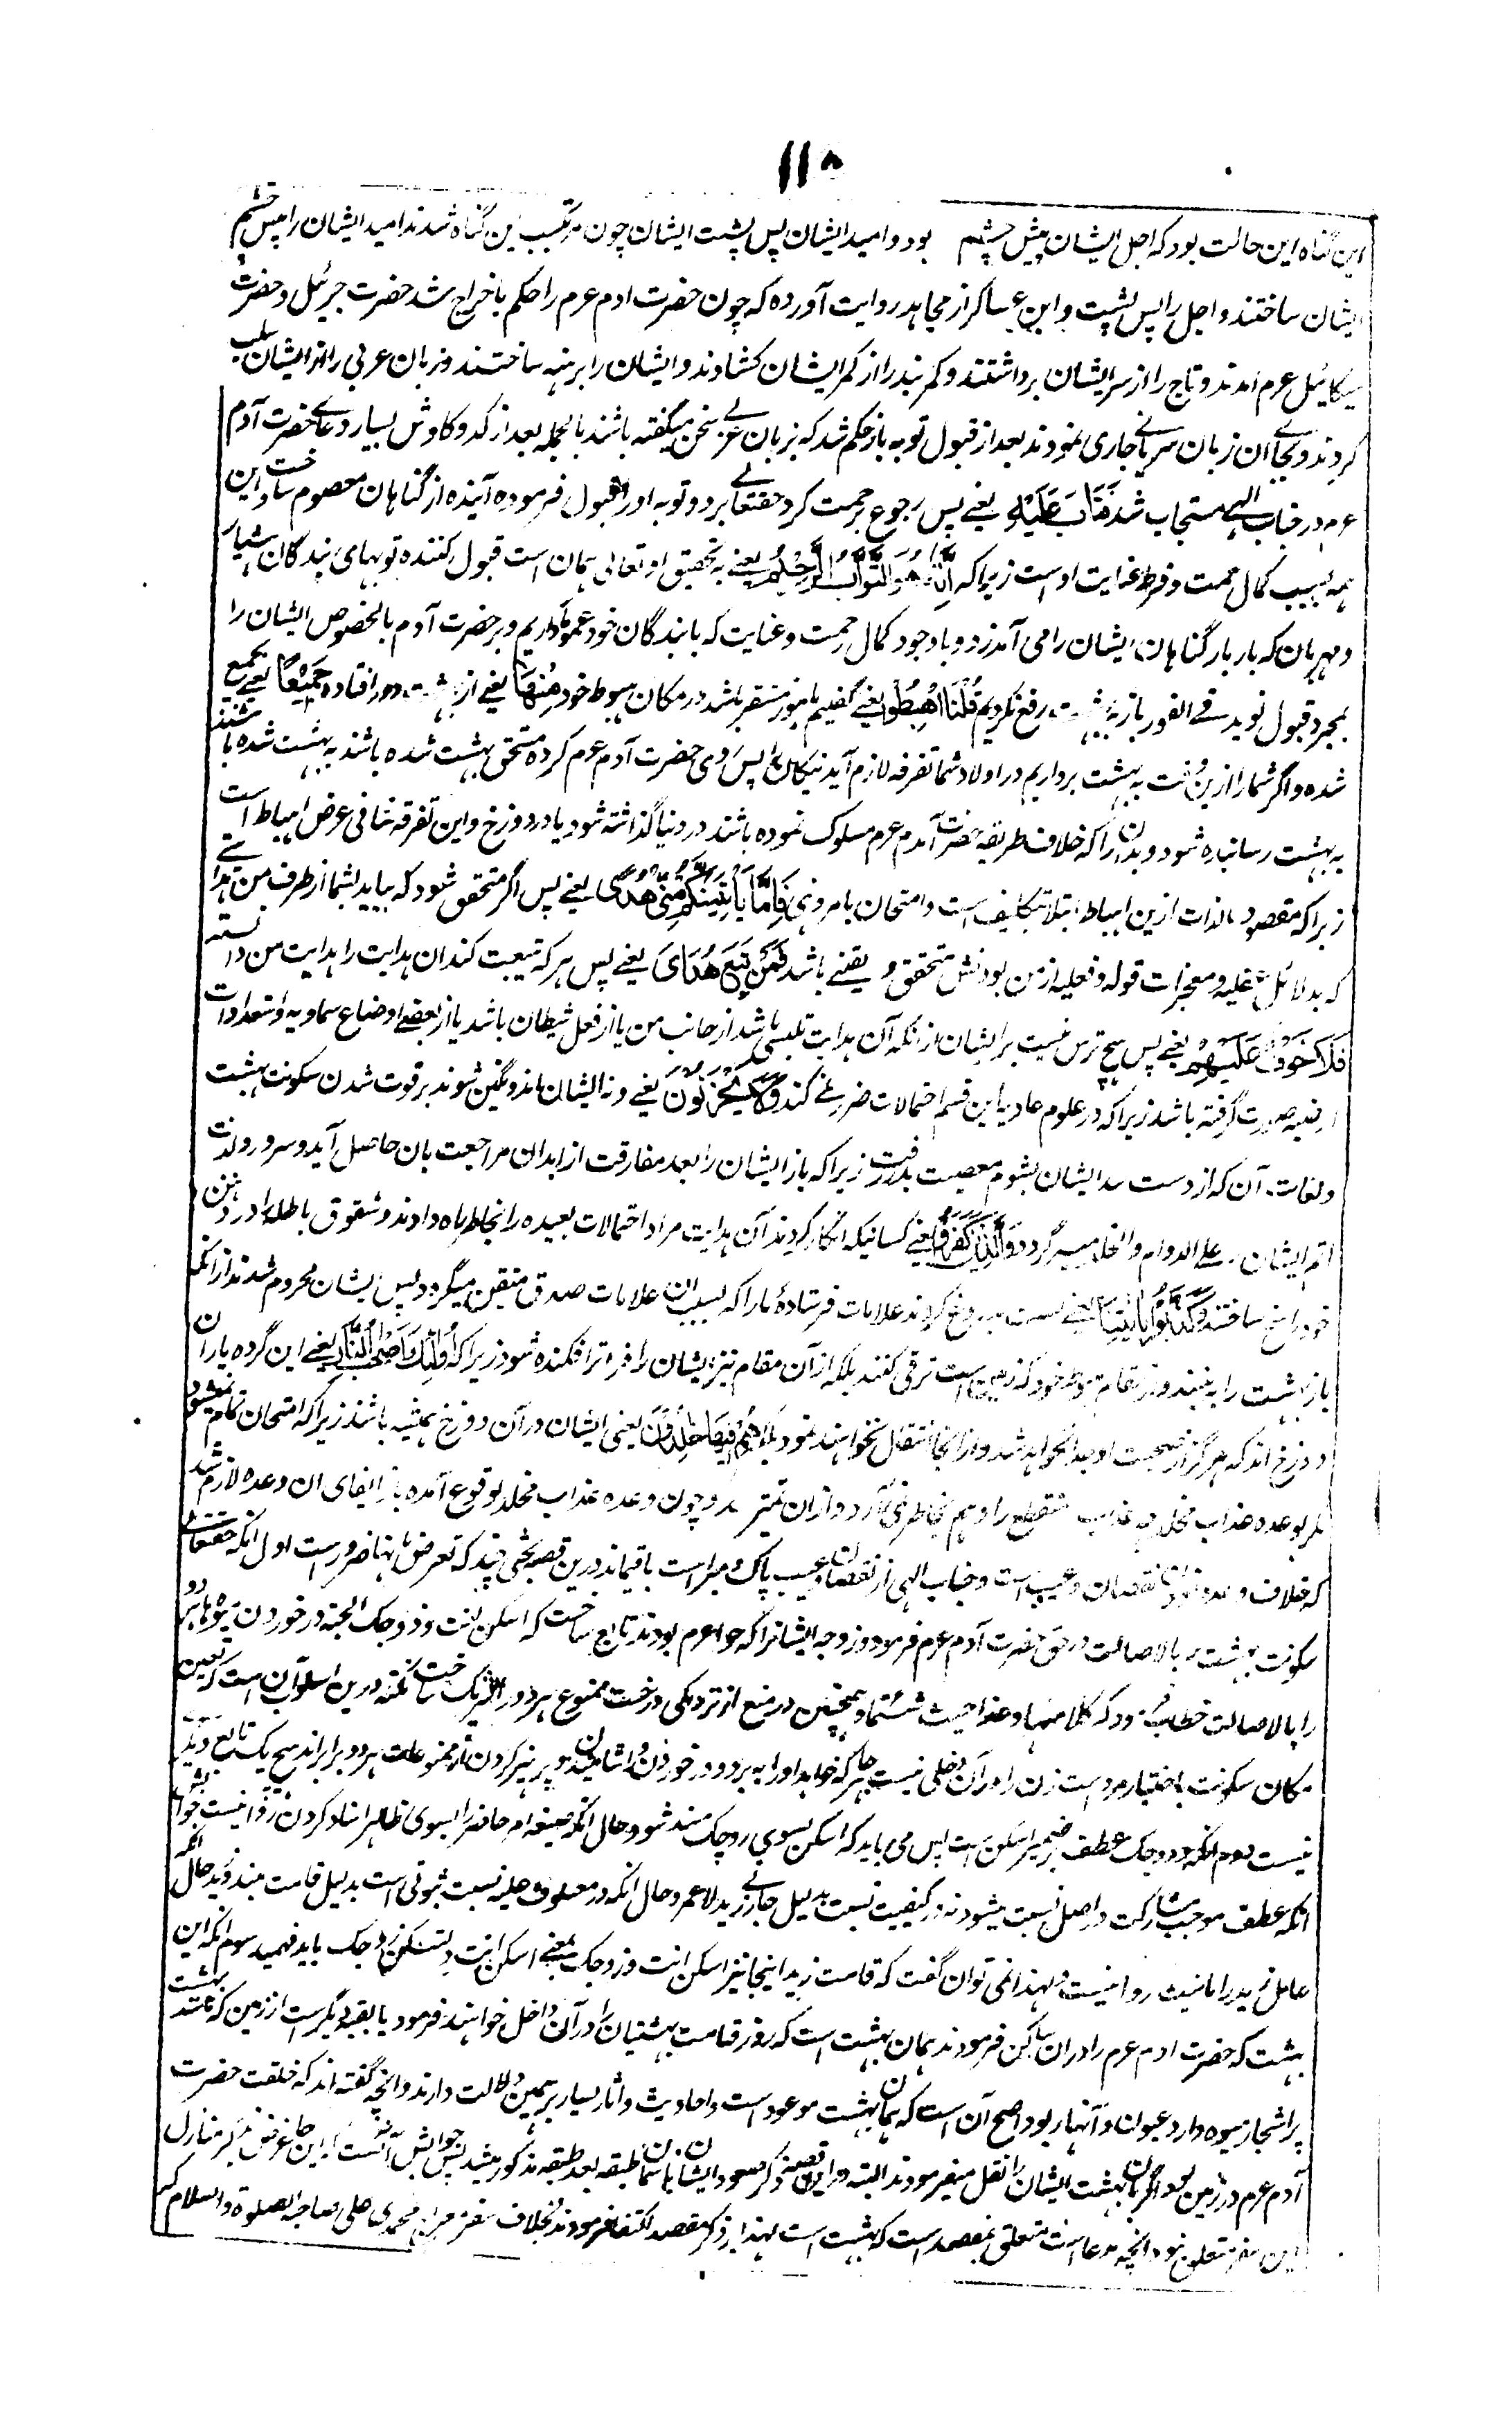 ١١٥
این گناه این حالت بود که اجل ایشان پیش چشم بود و امید ایشان پس پشت ایشان چون مرتکب این گناه شدند امید ایشان را پیش چشم
ایشان ساختند و اجل را پس پشت و ابن عساکر از مجاهد روایت آورده که چون حضرت ادم عرم را حکم باخراج شد حضرت جبرئیل و حضرت
میکائیل عرم امدند و تاج را از سر ایشان برداشتند و کمربند را از کمر ایشان کشادند و ایشان را برهنه ساختند و زبان عربی را از ایشان سلب
کردند و بجای ان زبان سریانی جاری نمودند بعد از قبول توبه باز حکم شد که بزبان عربی سخن میگفته باشند بالجمله بعد از کد و کاوش بسیار دعای حضرت آدم
عرم در جناب الهی مستجاب شد فَتَابَ عَلَیْهِ یعنی پس رجوع برحمت کرد حقتعالی برو و توبه او را قبول فرموده آینده از گناهان معصوم ساخت و این
همه بسبب کمال رحمت و فرط عنایت اوست زیرا که اِنَّهُ هُوَ التَّوَّابُ الرَّحِیْمُ یعنی به تحقیق او تعالی همان است قبول کننده توبهای بندگان بسیار
و مهربان که بار بار گناهان ایشان را می آمرزد و باوجود کمال رحمت و عنایت که با بندگان خود عموما داریم و بر حضرت آدم بالخصوص ایشان را
بمجرد قبول توبه فی الفور باز به بهشت رفع نکردیم قُلْنَا اهْبِطُوْا یعنی گفتیم باشد در مکان هبوط خود مِنْهَا یعنی از بهشت دور افتاده جَمِیْعًا یعنی بجمع
شده و اگر شما را ازین به بهشت برداریم در اولاد شما تفرقه لازم آید نیکان پس روی حضرت آدم عرم کرده مستحق بهشت شده باشند به بهشت شده باشند
به بهشت رسانیده شود و بدان را که خلاف طریقه حضرت آدم عرم مسلوک نموده باشند در دنیا گذاشته شود یا در دوزخ و این تفرقه منافی غرض اهباط است
زیرا که مقصود بالذات ازین اهباط ابتلا بتکلیف است و امتحان بامر و نهی فَاِمَّا یَاْتِیَنَّكُمْ مِنِّیْ هُدًی یعنی پس اگر متحقق شود که بیاید بشما از طرف من هدایتی
که بدلائل عقلیه و معجزات قولیه و فعلیه از من بودنش متحقق و یقینی باشد فَمَنْ تَبِعَ هُدَایَ یعنی پس هر که تبعیت کند ان هدایت را هدایت من دانسته
فَلَا خَوْفٌ عَلَیْهِمْ یعنی پس هیچ ترس نیست بر ایشان از انکه آن هدایت تلبیسی باشد از جانب من یا از فعل شیطان باشد یا از بعضی اوضاع سماویه و استعدادات
ارضیه صورت گرفته باشد زیرا که در علوم عادیه این قسم احتمالات ضرر نمی کند وَلَا هُمْ یَحْزَنُوْنَ یعنی و نه ایشان اندوهگین شوند بر فوت شدن سکونت بهشت
و نعمات آن که از دست ایشان بشوم معصیت پدر رفت زیرا که باز ایشان را بعد مفارقت از ابدان مراجعت بان حاصل آید و سرور و لذت
اتم ایشان علی الدوام والخلود میسر گردد وَالَّذِیْنَ كَفَرُوْا یعنی کسانیکه انکار کردند آن هدایت مرا و احتمالات بعیده را بخاطر راه دادند و شقوق باطله را در ذهن
خود راسخ ساختند وَكَذَّبُوْا بِاٰیٰتِنَا یعنی نسبت بدروغ کردند علامات فرستادۀ ما را که بسبب ان علامات صدق متیقن میگردد پس ایشان محروم شدند از انکه
باز بهشت را به بینند و از مقام هبوط خود که زمین است ترقی کنند بلکه از آن مقام نیز ایشان را فروتر افکنده شود زیرا که اُولٰٓئِكَ اَصْحٰبُ النَّارِ یعنی این گروه یاران
دوزخ اند که هرگز از صحبت او جدا نخواهد شد و از انجا انتقال نخواهند نمود بلکه هُمْ فِیْهَا خٰلِدُوْنَ یعنی ایشان در آن دوزخ همیشه باشند زیرا که امتحان تمام نمیشود
مگر بوعده عذاب مخلد عذاب منقطع را وهم بخاطر نمی آرد و ازان و چون وعده عذاب مخلد بوقوع آمده باز ایفای ان وعده لازم شد
که خلاف وعده نقصان و عیب است و جناب الهی از نقصان و عیب پاک و مبراست باقیماند درین قصه بحثی چند که تعرض بانها ضرور است اول انکه حقتعالی
سکونت بهشت را بالاصالت در حق حضرت آدم عرم فرمود و زوجه ایشانرا که حوا عرم بودند تابع ساخت که اسکن انت و زوجک الجنة و در خوردن میوه ها هر دو
را بالاصالت خطاب نمود که کلا منها رغدا حیث شئتما و همچنین در منع از نزدیکی درخت ممنوع هر دو را شریک ساخت نکته درین اسلوب آن است که تعین
مکان سکونت باختیار مرد است زن را در آن دخلی نیست هر جا که خواهد او را به برد و در خوردن و اشامیدن و پرهیز کردن از ممنوعات هر دو برابراند هیچ یک تابع دیگر
نیست دوم انکه و زوجک عطف بر ضمیر اسکن است پس می باید که اسکن بسوی زوجک مسند شود و حال انکه صیغه امر حاضر را بسوی ظاهر اسناد کردن روا نیست جوابش
انکه عطف موجب مشارکت در اصل نسبت میشود نه در کیفیت نسبت بدلیل جاءنی زید لا عمرو حال انکه در معطوف علیه نسبت ثبوتی است بدلیل قامت هند و زید حال انکه
عامل زید را تانیث روا نیست و لهذا نمی توان گفت که قامت زید اینجا نیز اسکن انت و زوجک بمعنی اسکن انت و لتسکن زوجک باید فهمید سوم انکه این
بهشت که حضرت ادم عرم را در ان ساکن فرمودند همان بهشت است که روز قیامت بهشتیان را در آن داخل خواهند فرمود یا بقعه دیگر است از زمین که مانند بهشت
پر اشجار میوه دار و عیون و انهار بود اصح آن است که همان بهشت موعود است و احادیث و آثار بسیار بر همین دلالت دارند و انچه گفته اند که خلقت حضرت
آدم عرم در زمین بود اگر بان بهشت ایشان را نقل میفرمودند البته درین قصه ذکر صعود ایشان باسمان طبقه بعد طبقه مذکور میشد پس جوابش آنست که این جا غرض بذکر منازل
این سفر متعلق نبود انچه مدعا است متعلق بمقصد است که بهشت است لهذا بر ذکر مقصد اکتفا فرمودند بخلاف سفر معراج محمدی علی صاحبه الصلوة والسلام که